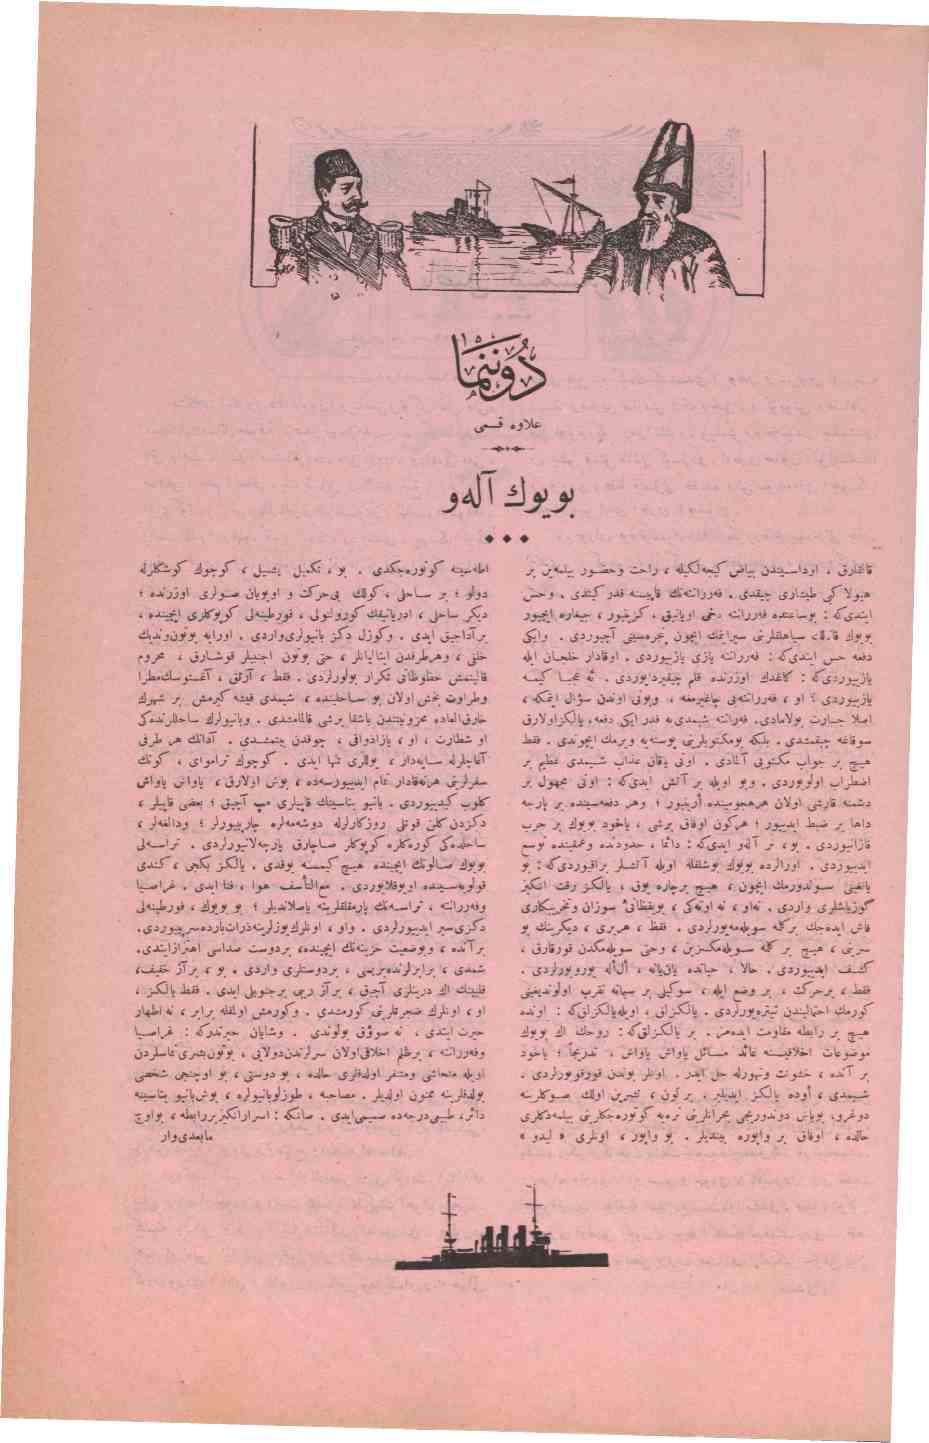 دوننما
علاوه قسمی
بویوك آلەو
قالقارق ، اوداسـیندن بیاض كیجه‌لكیله ، راحت وحضـور بیلمه‌ین بر
هیولا كبی طیشاری چیقدی . فه‌ررانته‌نك قاپیسنه قدر كیتدی . وحس
ایتدی‌كه : بوساعتده فه‌ررانته دخی اویانیق ، كزینیور ، سیغاره ایچیور
دفعه حس ایتدی‌كه : فه‌ررانته یازی یازییوردی . اوقادار خلجان ایله
یازییوردی‌كه : كاغدك اوزرنده قلم چیقیردایوردی . نه عجبا كیمـه
یازییوردی ؟ او ، فه‌ررانته‌یی چاغیرمغه ، وبونی اوندن سؤال ایتمكه ،
اصلا جسارت بولامادی. فه‌ررانته شیمدی‌یه قدر ایكی دفعه، یالكزاولارق
سوقاغه چیقمشدی . بلكه بومكتوبلرینی پوسته‌یه ویرمك ایچوندی . فقط
هیـچ بر جواب مكتوبی آلمادی . اونی یاقان عذاب شـیمدی عظیم بر
اضطراب اولویوردی . وبو اویله بر آتش ایدی‌كه : اونی مجهول بر
دشمنه قارشی اولان هرهجومینده أزییور ؛ وهر دفعه‌سینده بر پارچه
داها بر ضبط ایدییور ؛ هركون اوفاق برشی ، یاخود بویوك بر حرب
قازانیوردی . بو ، بر آلەو ایدی‌كه : دائما ، حدودنده وعمقینده توسع
ایدییوردی . اورالرده بویوك بوشلقلغه اویله آتشـلر براقیوردی‌كه : بو
یانغینی سـوندورمك ایچون ، هیـچ برچاره یوق ، یالكـز رقت انكیز
گوزیاشلری واردی .
فاش ایده‌جك بركلمه سویله‌مه‌یورلردی . فقط ، هربری ، دیكرینك بو
سرینی ، هیـچ بر كلمه سـویله‌مكسـزین ، وحتی سویله‌مكدن قورقارق ،
كشـف ایدییوردی . حالا ، حیاتده یان‌یانه ، أل‌أله یورویورلردی .
فقط ، برحركت ، بر وضع ایله ، سوكیلی بر سیمایه تقرب اولوندیغینی
كورمك احتمالیندن تیتره‌یورلردی . یالكزلق ، اویله‌یالكزلق‌كه : اونده
هیـچ بر رابطه مقاومت ایده‌مز . بر یالكزلق‌كه : روحك اك بویوك
موضوعات اخلاقیـسنه عائد مسائل یاواش یاواش ، تدریجاً ؛ یاخود
بر آنده ، خشونت وتهورله حل ایدر . اونلر بوندن قورقویورلردی .
شیـمدی ، أوده یالكـز ایدیلر . برگون ، تشرین اولك صـوكلرینه
حالده ، اوفاق بر واپوره بیندیلر . بو واپور ، اونلری « لیدو »
اطه‌سینه كوتوره‌جكدی . بو ، تكمیل یشـیل ، كوچوك كوشكلرله
دولو ؛ بر سـاحلی ، كولك بی‌حركت و اویویان صـولری اوزرنده ؛
دیكر ساحلی ، ادریاتیقك كورولتولی ، فورطینه‌لی كوپوكلری ایچینده ،
برآداجیق ایدی . وكوزل دكز بانیولری‌واردی . اورایه بوتون‌وندیك
خلقی ، وهرطرفدن ایتالیانلر ، حتی بوتون اجنبیلر قوشـارق ، محروم
قالیتمش حظوظاتی تكرار بولورلردی . فقط ، آرتق ، آغستوسك‌مطرا
وطراوت بخش اولان بو سـاحلنده ، شیمدی قیشه كیرمش بر شهرك
خارق‌العاده محزونیتندن باشقا برشی قالمامشدی . وبانیولرك ساحللرنده‌كی
او شطارت ، او ، بازادواقی ، چوقدن بیتمشـدی . آدانك هر طرفی
آغاجلرله سـایه‌دار ، یوللری تنها ایدی . كوچوك تراموای ، كونك
سفرلرینی هرنه‌قادار تمام ایدییورسه‌ده ، بوش اولارق ، یاواش یاواش
كلوب كیدییوردی . بانیو بناسینك قاپیلری هپ آچیق ؛ بعضی قاپیلر ،
دكزدن كلن قوتلی روزكارلرله دوشمه‌لره چارپییورلر ؛ ودالغه‌لر ،
ساحلده‌كی كوره‌كلره كوپوكلر صـاچارق پارچه‌لانییورلردی . تراسـه‌لی
بویوك صـالونك ایچینده هیـچ كیمسـه یوقدی . یالكـز بكجی ، كندی
قولوبه‌سـینده اویوقلایوردی . مع‌التأسـف هوا ، فنا ایدی . غراصـیا
وفه‌ررانته ، تراسـه‌نك پارمقلقلرینه یاصلاندیلر ؛ بو بویوك ، فورطینه‌لی
دكزی‌سیر ایدییورلردی . واو ، اونلرك‌یوزلرینه ذرات‌بارده‌سرپییوردی.
بر آنده ، وبوضعیت حزینه‌نك ایچینده ، بردوست صداسی اهتزازایتدی.
شمدی ، برابرلرنده‌بریسی ، بردوستلری واردی . بو ، برآز خفیف،
قلبینك اك درینلری آچیق ، برآز ریبی برجنوبلی ایدی . فقط یالكـز ،
او ، اونلرك ضجرتلرینی كورمـشدی . وكورمش اولمقله برابر ، نه‌اظهار
حیرت ایتدی ، نه صوؤق بولوندی . وشایان حیرتدركه : غراصـیا
وفه‌ررانته ، برظلم اخلاقی‌اولان سرلرندن‌دولایی ، بوتون‌بشری‌تماسلردن
اویله متحاشی ومتنفر اولدقلری حالده ، بو دوستی ، بو اوچنجی شخصی
بولدقلرینه ممنون اولدیلر . مصاحبه ، طوزلوبانیولره ، بوش‌بانیو بناسینه
دائر، طبیعی‌درجه‌ده صمیمی‌ایدی . صانكه : اسرارانكیزبررابطه ، بواوچ
مابعدی‌وار